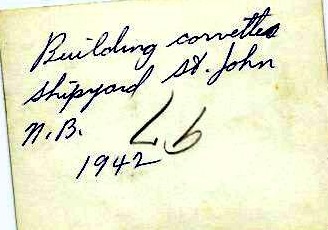 Building corvettes
shipyard St. John
N.B.
1942